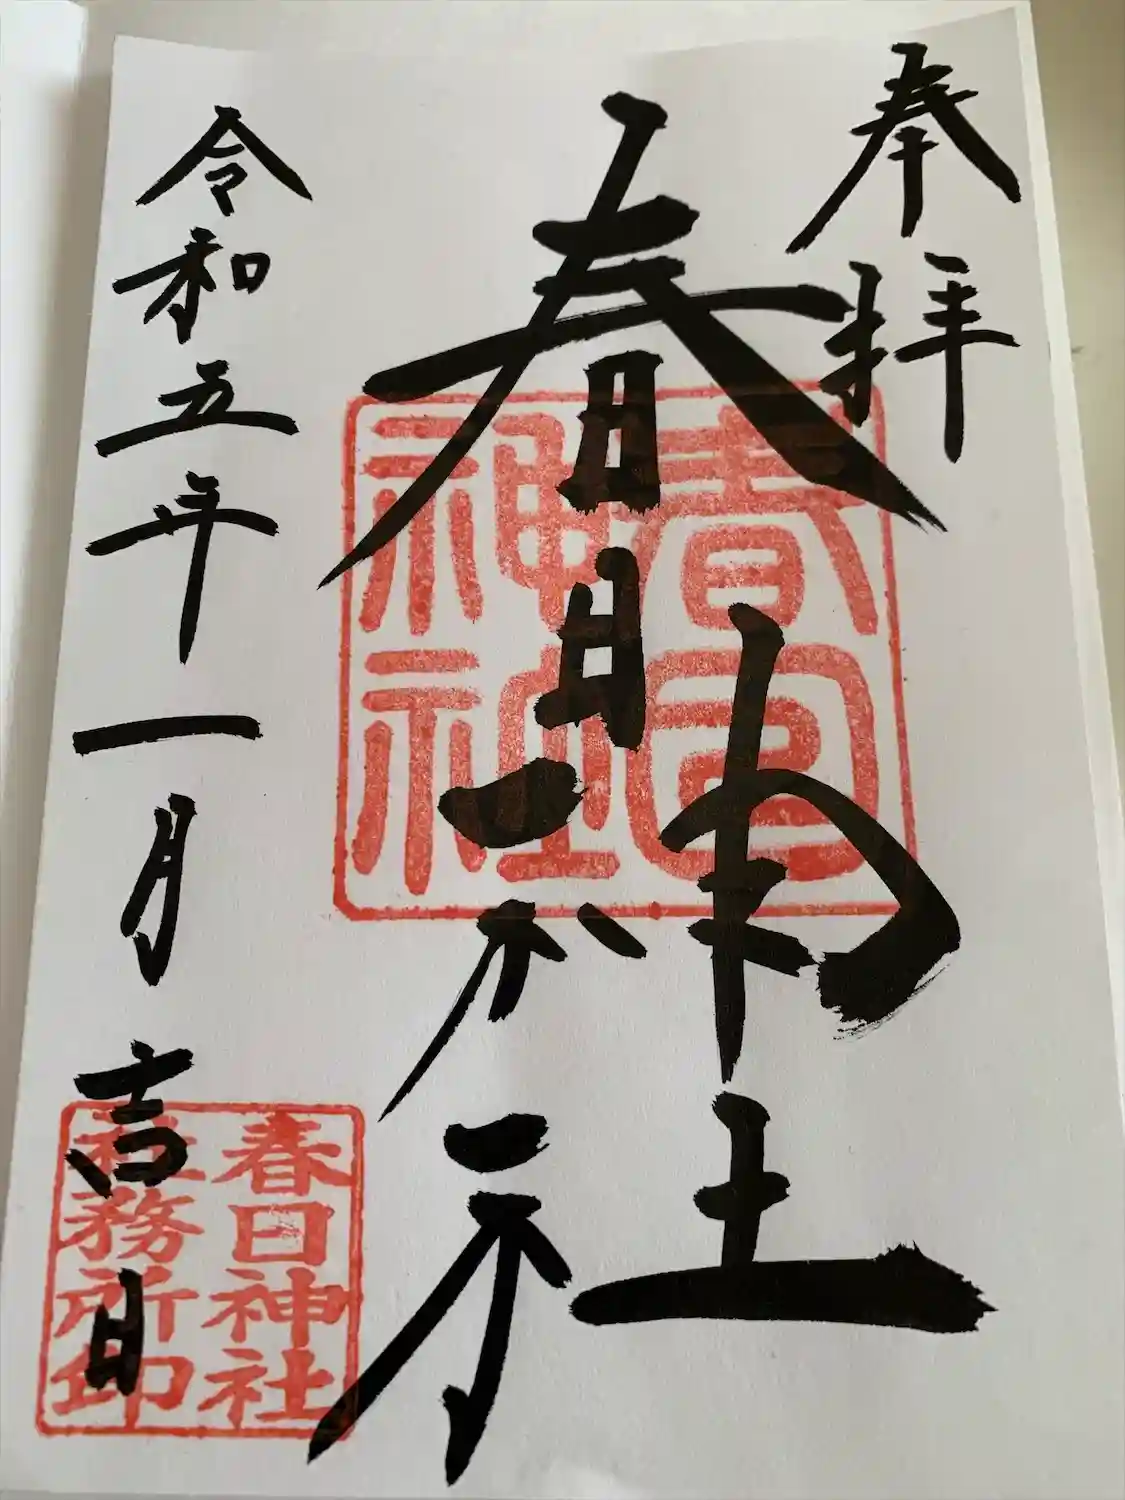 奉拝
春日神社
令和五年一月吉日
春日
神社
春日神社
社務所印